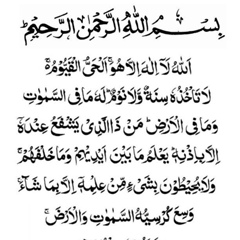 بِسْمِ اللهِ الرَّحْمٰنِ الرَّحِيْمِ
اَللهُ لَآ اِلٰهَ اِلَّا هُوَ ۚ اَلْحَيُّ الْقَيُّوْمُ ۚ
لَا تَاْخُذُهٗ سِنَةٌ وَّلَا نَوْمٌ ؕ لَهٗ مَا فِی السَّمٰوٰتِ
وَمَا فِی الْاَرْضِ ؕ مَنْ ذَا الَّذِیْ يَشْفَعُ عِنْدَهٗۤ
اِلَّا بِاِذْنِهٖ ؕ يَعْلَمُ مَا بَيْنَ اَيْدِيْهِمْ وَمَا خَلْفَهُمْ ۚ
وَلَا يُحِيْطُوْنَ بِشَیْءٍ مِّنْ عِلْمِهٖۤ اِلَّا بِمَا شَآءَ ۚ
وَسِعَ كُرْسِيُّهُ السَّمٰوٰتِ وَالْاَرْضَ ۚ